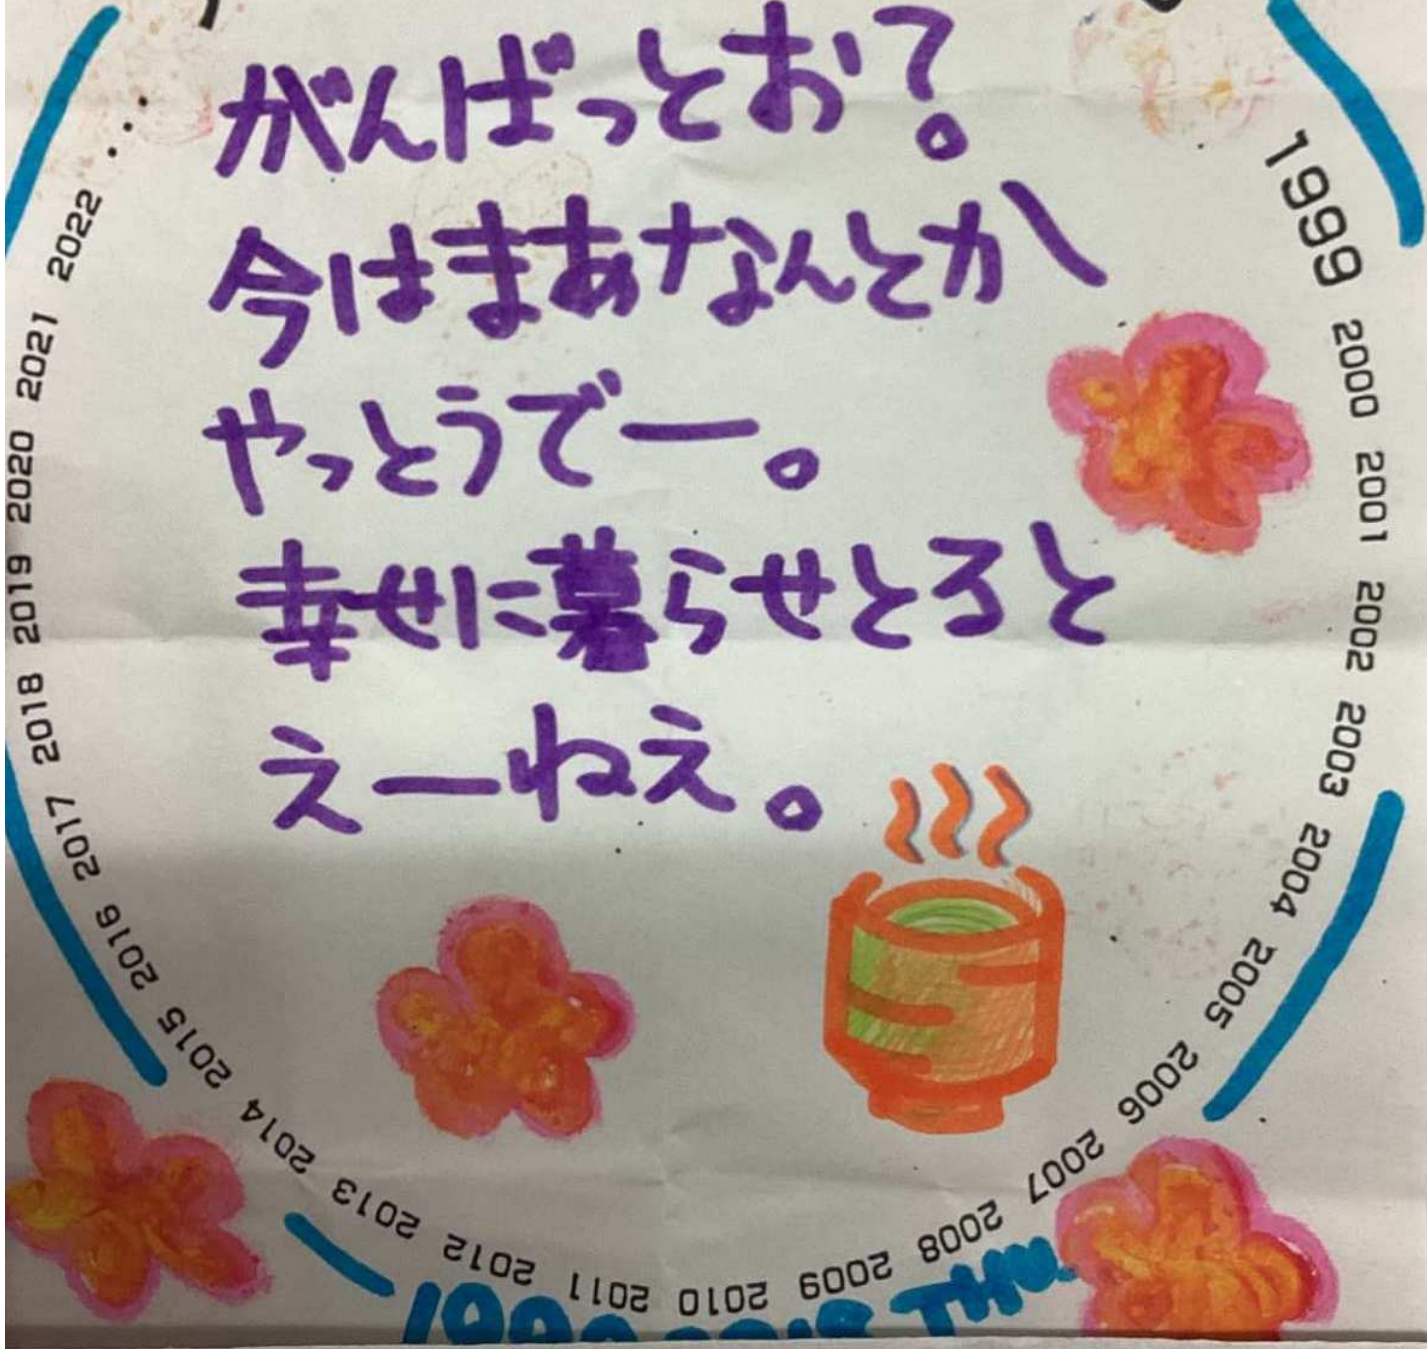 がんばっとお?。
今はまあなんとか
やっとうでー。
幸せに暮らせとると
えーねえ。
1999 2000 2001 2002 2003 2004 2005 2006 2007 2008 2009 2010 2011 2012 2013 2014 2015 2016 2017 2018 2019 2020 2021 2022 ...